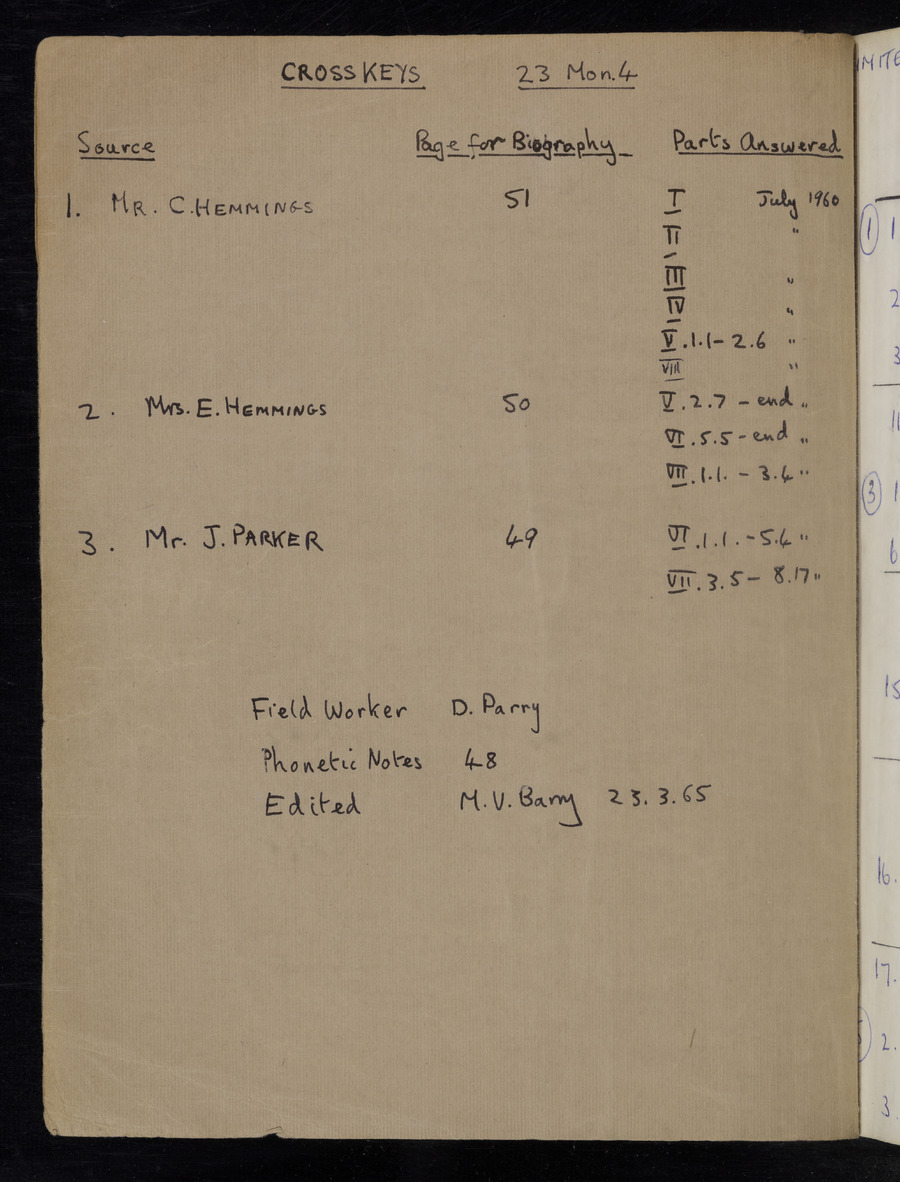 CROSSKEYS 23 Mon.4
Source Page for Biography Parts Answered
1. MR. C. HEMMINGS 51 I July 1960
II "
III "
IV "
V.1.1- 2.6 "
VIII "
2. Mrs. E. HEMMINGS 50 V.2.7 - end "
VI.5.5 - end "
VII.1.1. - 3.4 "
3. Mr. J. PARKER 49 VI.1.1. - 5.4 "
VII.3.5 - 8.17 "
Field Worker D. Parry
Phonetic Notes 48
Edited M.V. Barry 23.3.65
1 1
2
3
11
3 1
6
15
16.
17.
2.
3